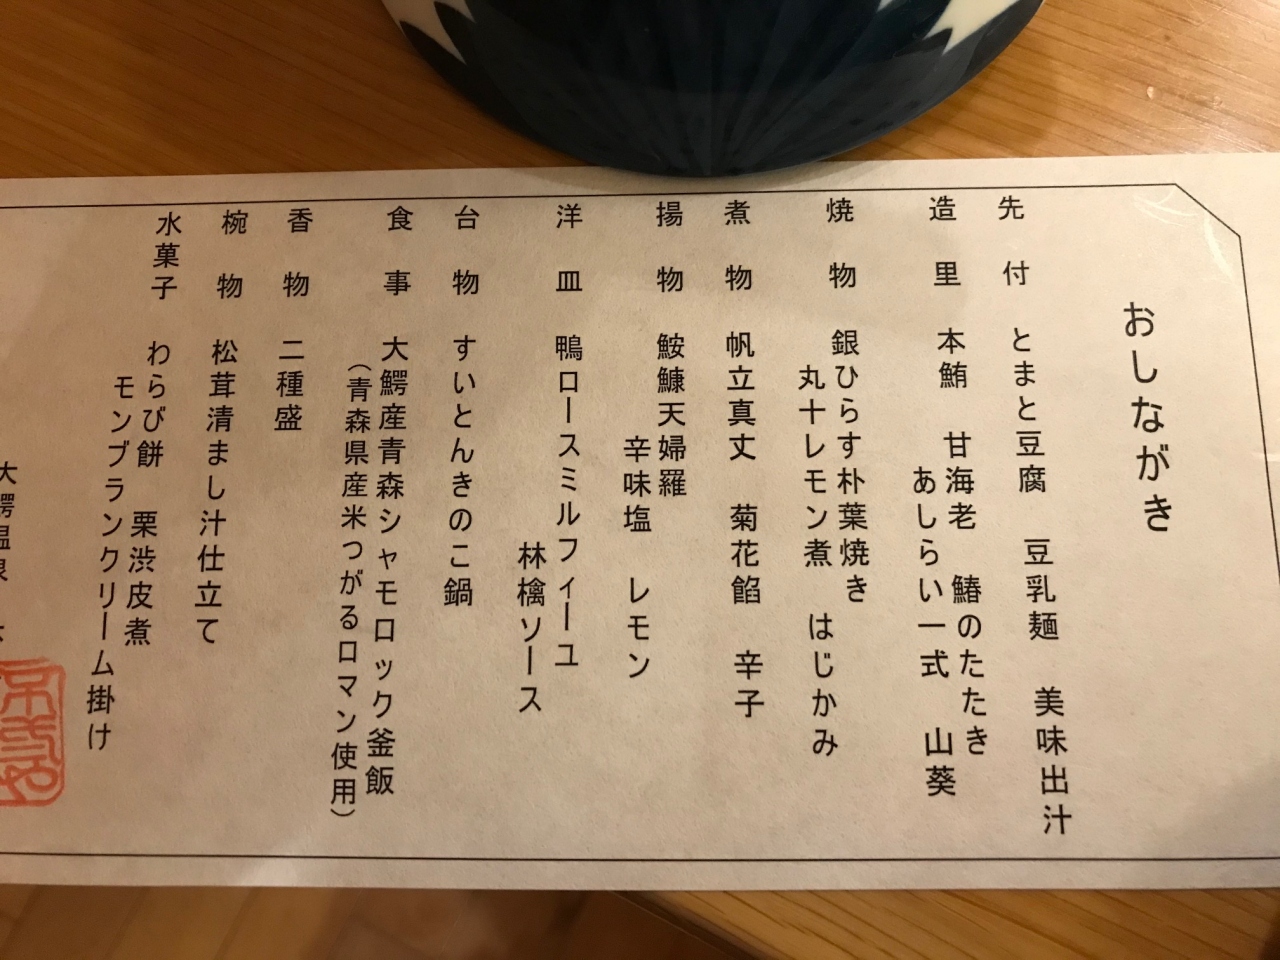 おしながき
先付 とまと豆腐 豆乳麺 美味出汁
造里 本鮪 甘海老 鰆のたたき
あしらい一式 山葵
焼物 銀ひらす朴葉焼き
丸十レモン煮 はじかみ
煮物 帆立真丈 菊花餡 辛子
揚物 鮟鱇天婦羅
辛味塩 レモン
洋皿 鴨ロースミルフィーユ
林檎ソース
台物 すいとんきのこ鍋
食事 大鰐産青森シャモロック釜飯
（青森県産米つがるロマン使用）
香物 二種盛
椀物 松茸清まし汁仕立て
水菓子 わらび餅 栗渋皮煮
モンブランクリーム掛け
大鰐温泉